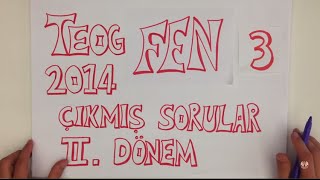 TEOG FEN 3
2014
ÇIKMIŞ SORULAR
II. DÖNEM